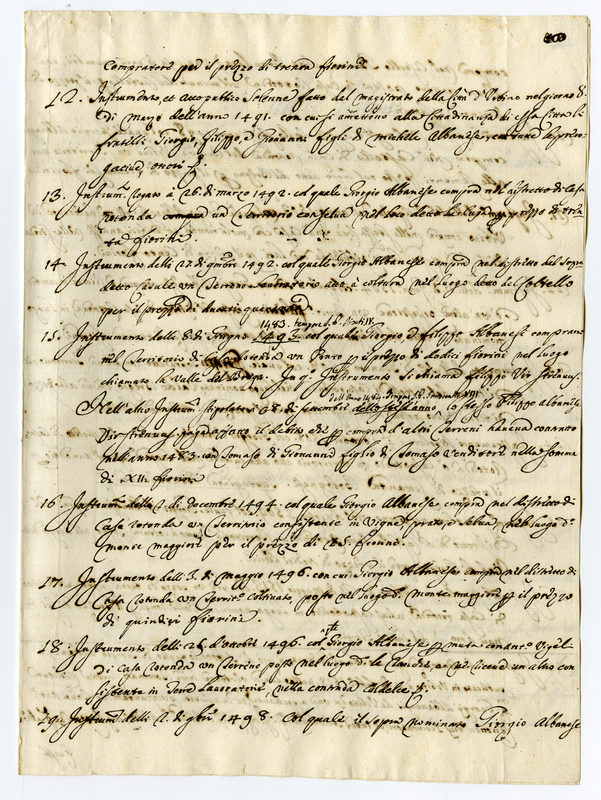 Compratore per il prezzo di trenta fiorini.
12. Instrumento, et atto publico Solenne fatto dal magistrato della Città d'Urbino nel giorno 8.
di marzo dell'anno 1491. con cui si amettono alla Cittadinanza di essa Città li
fratelli, Giorgio, filippo, e Giovanni figli di michele Albanese, con tutte le prero-
gative, onori
13. Instrum. rogato a 26. di marzo 1492. col quale Giorgio Albanese compra nel distretto di Casa
rotonda un Territorio nel loco detto
ta fiorini.
14. Instrumento delli 27. di 1492. col quale Giorgio Albanese compra nel distretto del Sopra
detto Casale un Terreno Lavoratorio atto a coltura nel luogo detto del Coltello
per il prezzo di ducati
1483. tempore S. Sixti IV.
15. Instrumento delli 8. di Giugno 1493. col quale Giorgio, e filippo Albanesi comprano
nel Territorio di Casa rotonda un per il prezzo di dodici fiorini nel luogo
chiamato la Valle In Instrumento si chiama filippo Vir strenuus.
dell'Anno 1484. Innocentii VIII
Nell'altro Instrum. stipolato di settembre dello stesso anno lo stesso filippo albanese
Vir strenuus, paga affatto il debito, che compra d'altri Terreni haveva contratto
nell'anno 1483. con Tomaso di Giovanni figlio di Tomaso Venditore nella somma
di XII. fiorini
16. Instrum. delli 2. di Decembre 1494. col quale Giorgio Albanese compra nel distretto di
Casa rotonda un Territorio consistente in Vigna, prato, e Selva, nel luogo d.
monte maggiore per il prezzo di fiorini.
17. Instrumento delli 3. di Maggio 1496. con cui Giorgio Albanese compra nel distretto di
Casa rotonda un Territ. coltivato, posto nel luogo d. monte maggiore per il prezzo
di quindici fiorini.
18. Instrumento delli 26. d'ottobre 1496. col Giorgio Albanese permuta con
di Casa rotonda un Terreno posto nel luogo di e ne riceve un altro con
sistente in Terra Lavoratoria, nella contrada
19. Instrum. delli 2. di 1498. col quale il sopra nominato Giorgio Albanese